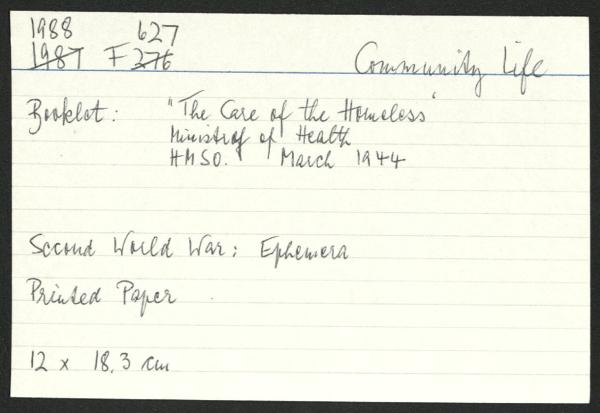 1988 627
1987 F 276
Community Life
Booklet: "The Care of the Homeless"
Ministry of Health
HMSO. March 1944
Second World War: Ephemera
Printed Paper
12 x 18.3 cm